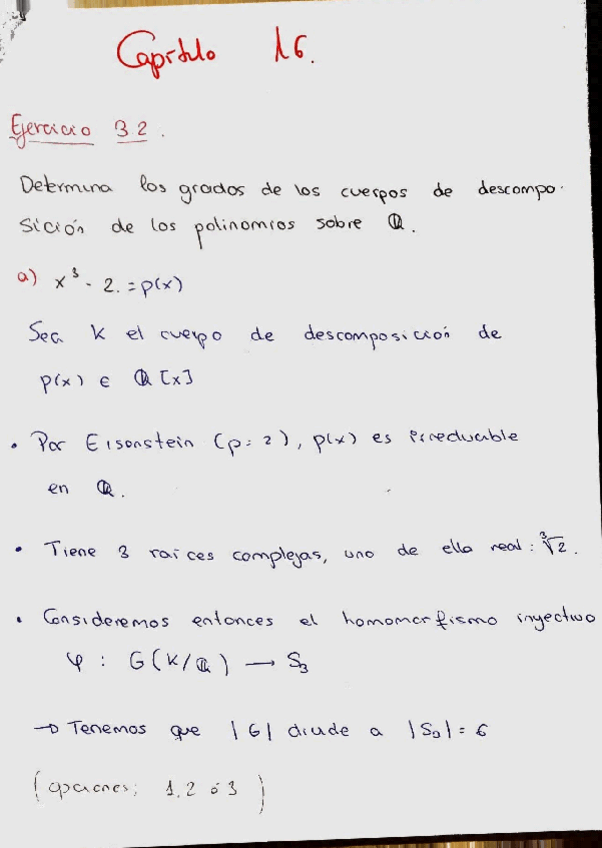 Capítulo 16.
Ejercicio 3.2.
Determina los grados de los cuerpos de descompo-
sición de los polinomios sobre ℚ.
a) x³ - 2. = p(x)
Sea K el cuerpo de descomposición de
p(x) ∈ ℚ[x]
• Por Eisenstein (p=2), p(x) es irreducible
en ℚ.
• Tiene 3 raíces complejas, uno de ella real: ∛2.
• Consideremos entonces el homomorfismo inyectivo
φ : G(K/ℚ) → S₃
→ Tenemos que |G| divide a |S₃| = 6
(opciones: 1, 2 ó 3)